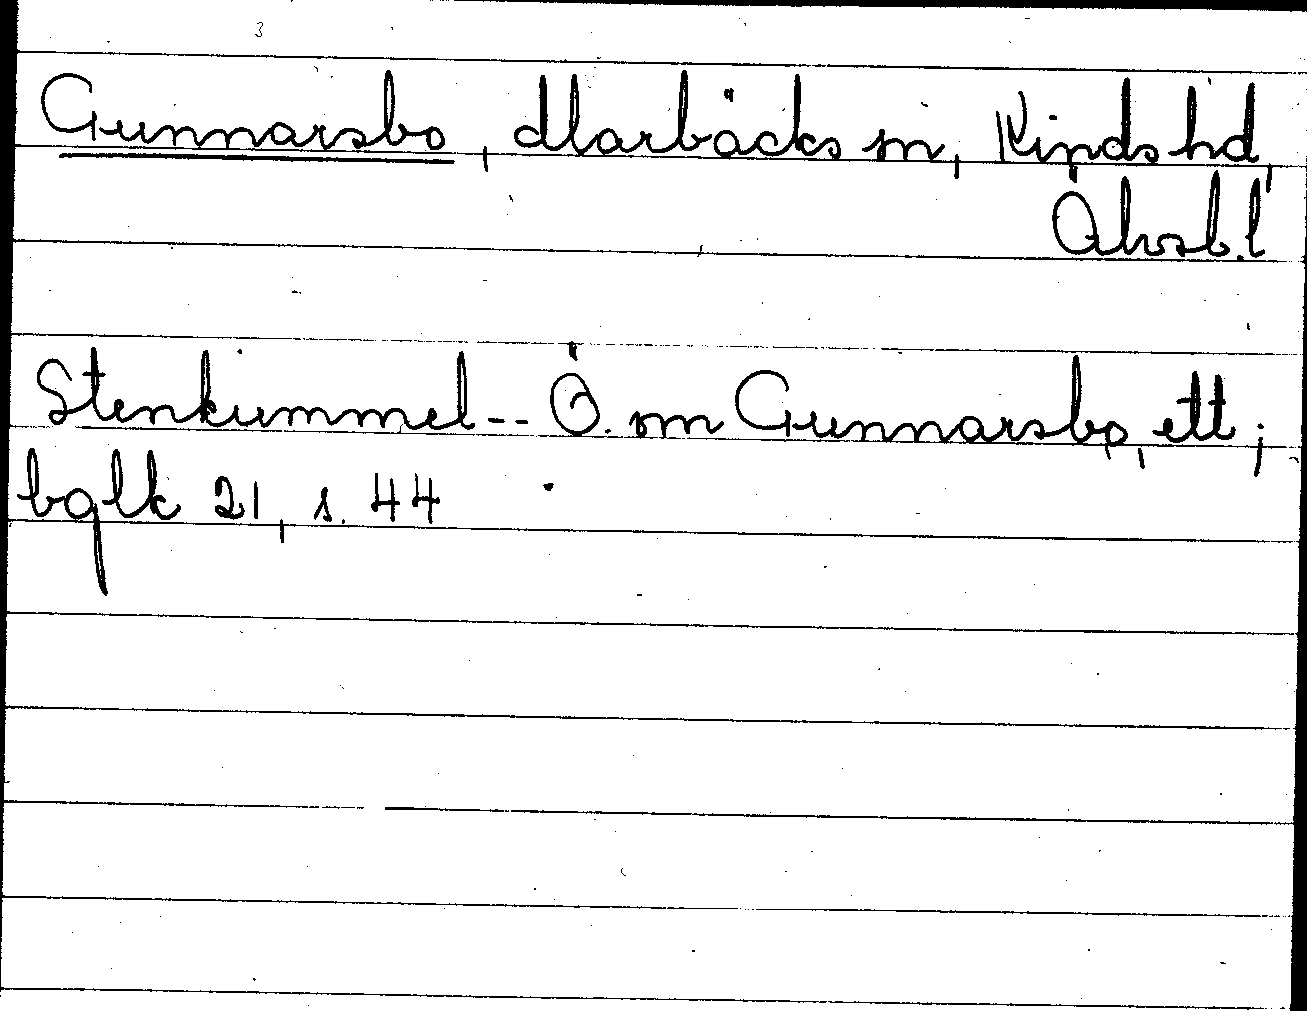 Gunnarsbo, Marbäcks sn, Kinds hd,
Älvsb. l
Stenkummel -- Ö. om Gunnarsbo, ett;
bglk 21, s. 44